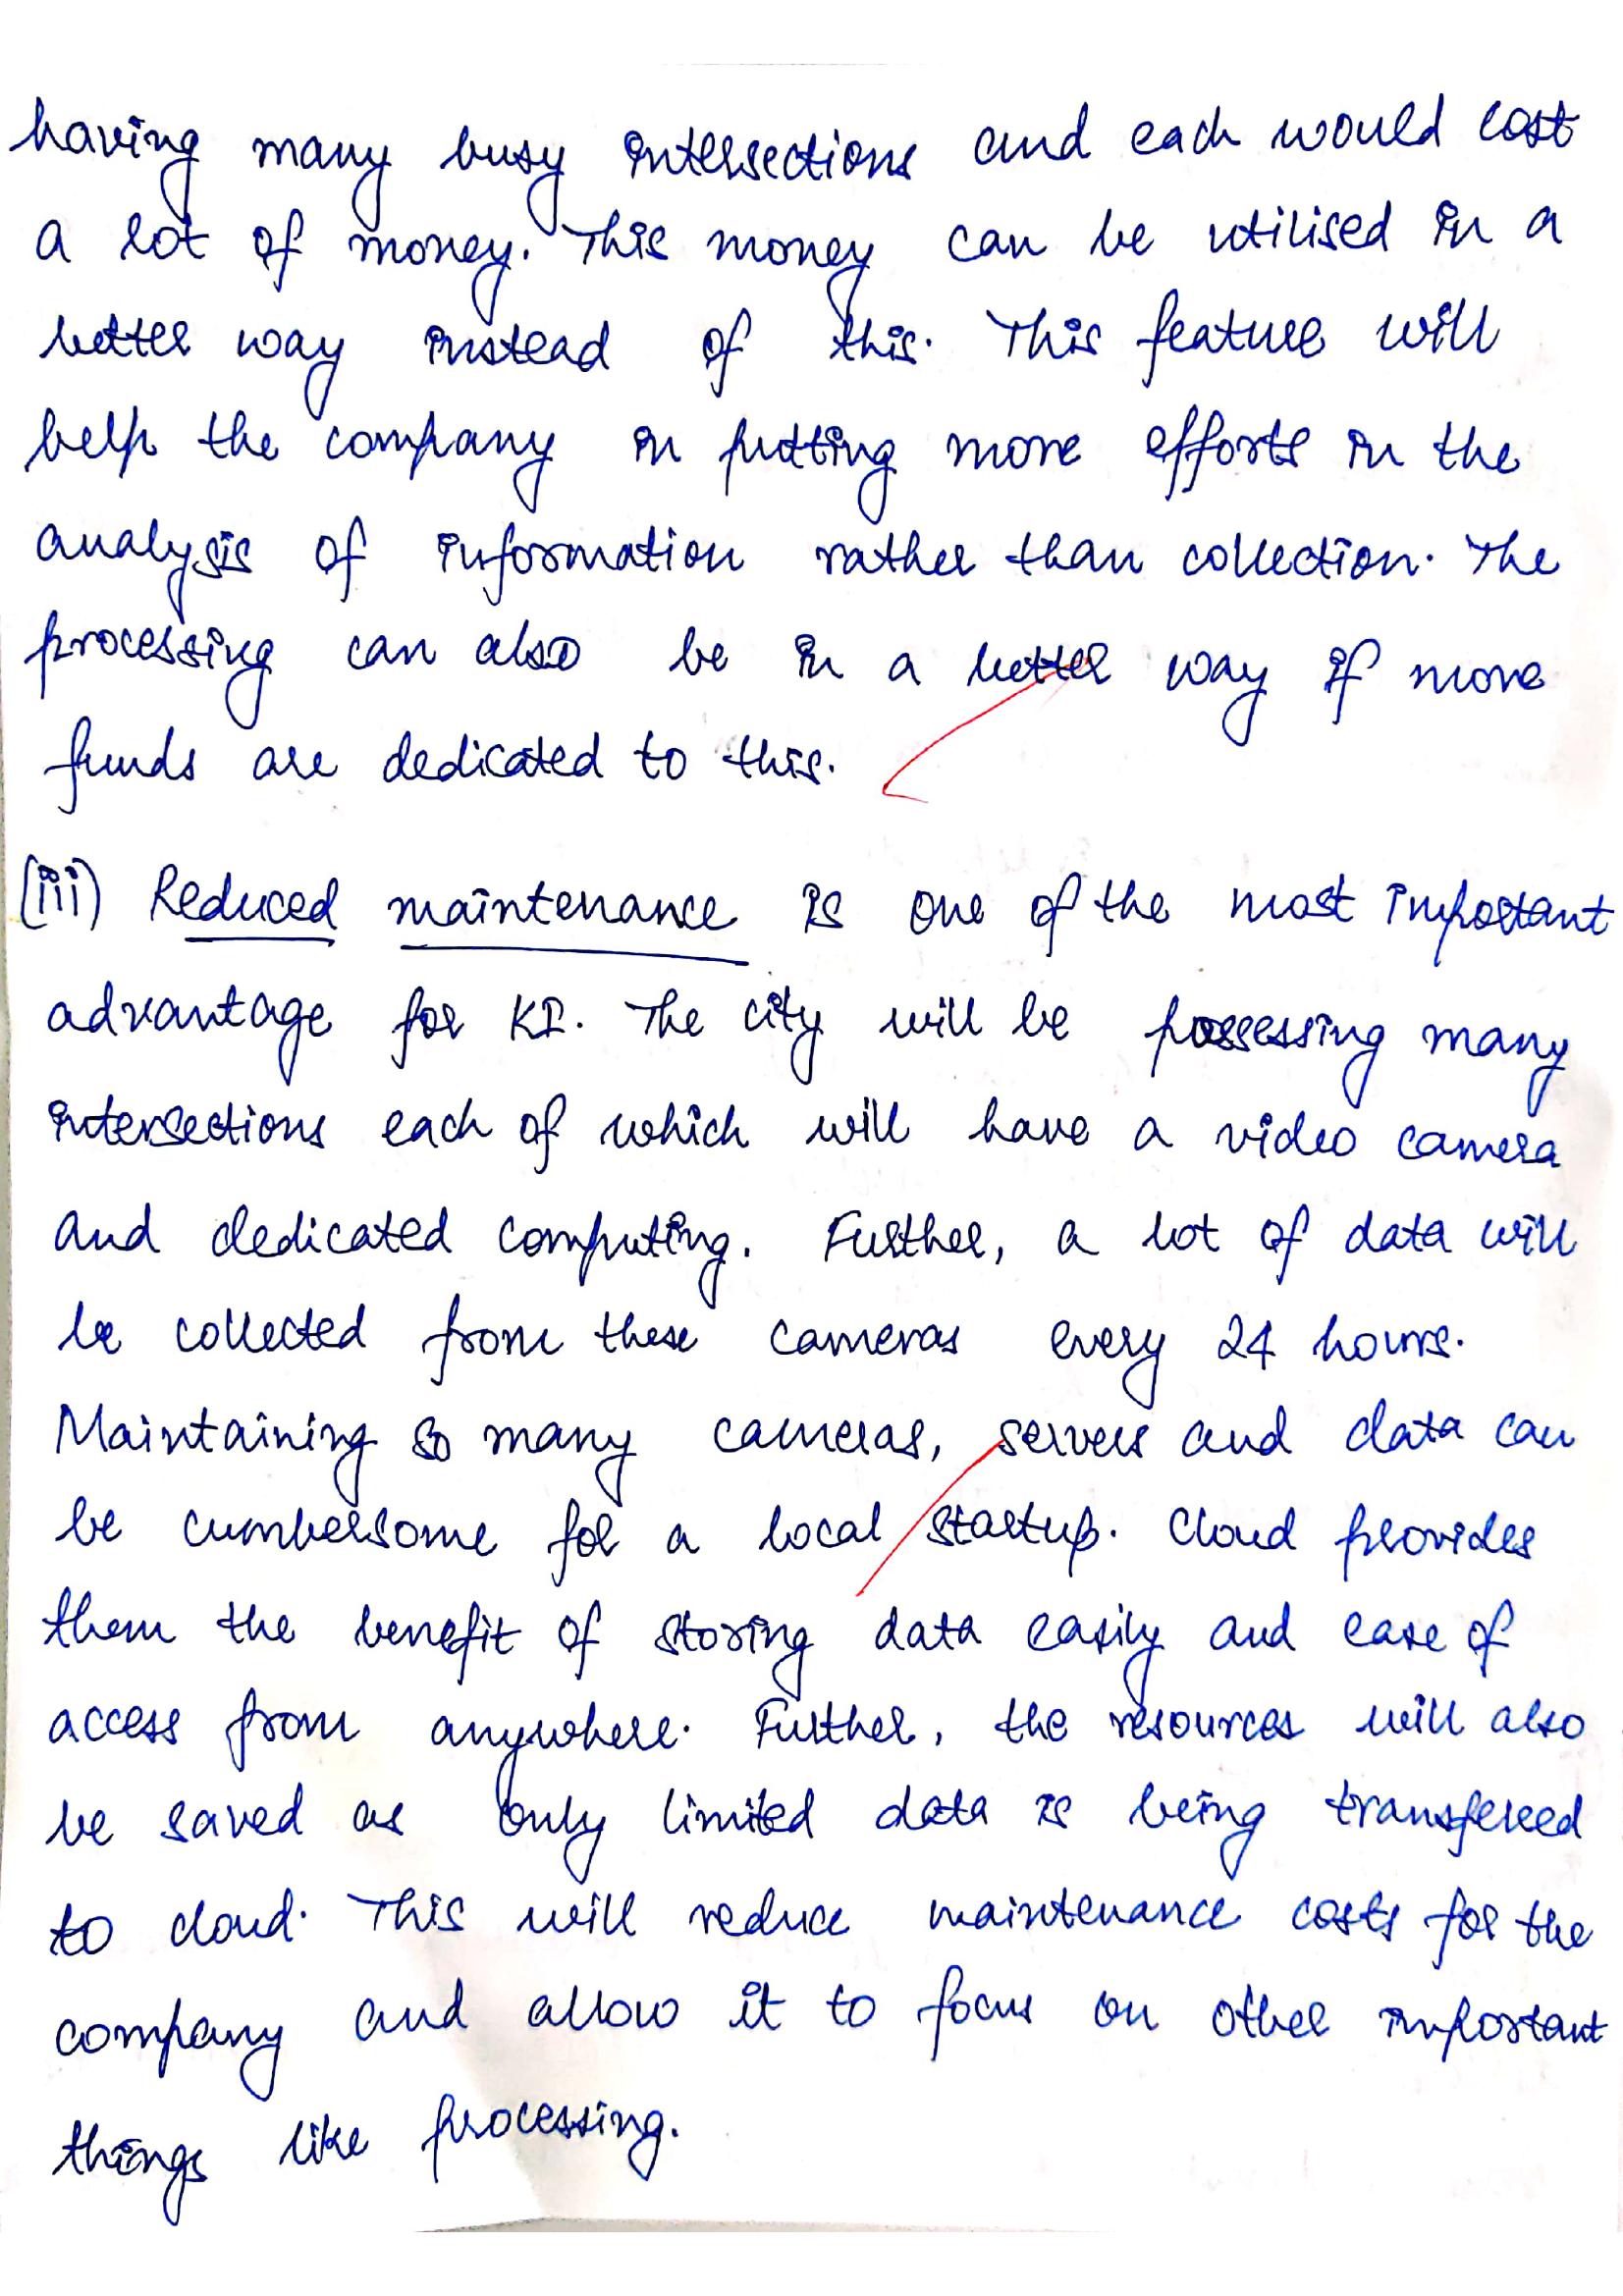 having many busy intersections and each would cost
a lot of money. This money can be utilised in a
better way instead of this. This feature will
help the company in putting more efforts in the
analysis of information rather than collection. The
processing can also be in a better way if more
funds are dedicated to this.
(iii) Reduced maintenance is one of the most important
advantage for KI. The city will be possessing many
intersections each of which will have a video camera
and dedicated computing. Further, a lot of data will
be collected from these cameras every 24 hours.
Maintaining so many cameras, servers and data can
be cumbersome for a local startup. Cloud provides
them the benefit of storing data easily and ease of
access from anywhere. Further, the resources will also
be saved as only limited data is being transfered
to cloud. This will reduce maintenance costs for the
company and allow it to focus on other important
things like processing.